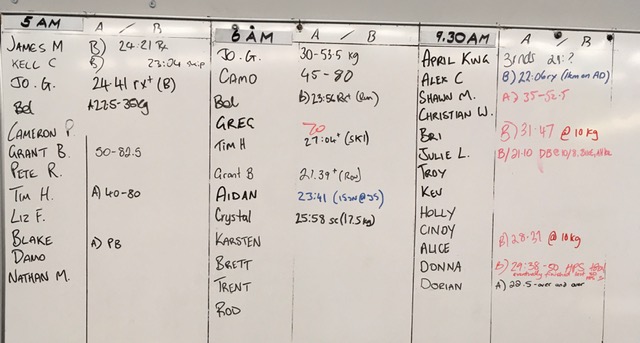 5 AM A / B
JAMES M B) 24:21 Rx
KELL C B) 23:04 skip
JO.G. 24:41 rx+ (B)
Bel A) 22.5-35kg
CAMERON P.
GRANT B. 50-82.5
PETE R.
TIM H. A) 40-80
LIZ F.
BLAKE A) PB
DAMO
NATHAN M.
6 AM A / B
JO.G. 30-53.5 kg
CAMO 45-80
Bel b) 23:56 Rx+
GREG 70
TIM H 27:04+ (SKI)
Grant B 21.39+ (Row)
AIDAN 23:41
Crystal 25:58 sc (17.5kg)
KARSTEN
BRETT
TRENT
ROD
9.30AM A / B
APRIL KING 3rnds 21:?
ALEX C B) 22:06rx (1km on AD)
SHAWN M. A) 35-52.5
CHRISTIAN W.
BRI B) 31:47 @ 10kg
JULIE L. B) 21:10 DB @
TROY
KEV
HOLLY
CINDY
ALICE B) 28:31 @ 10kg
DONNA B) 29:38 - 50 MPS
eventually finished last 50
DORIAN A) 22.5 - over and over